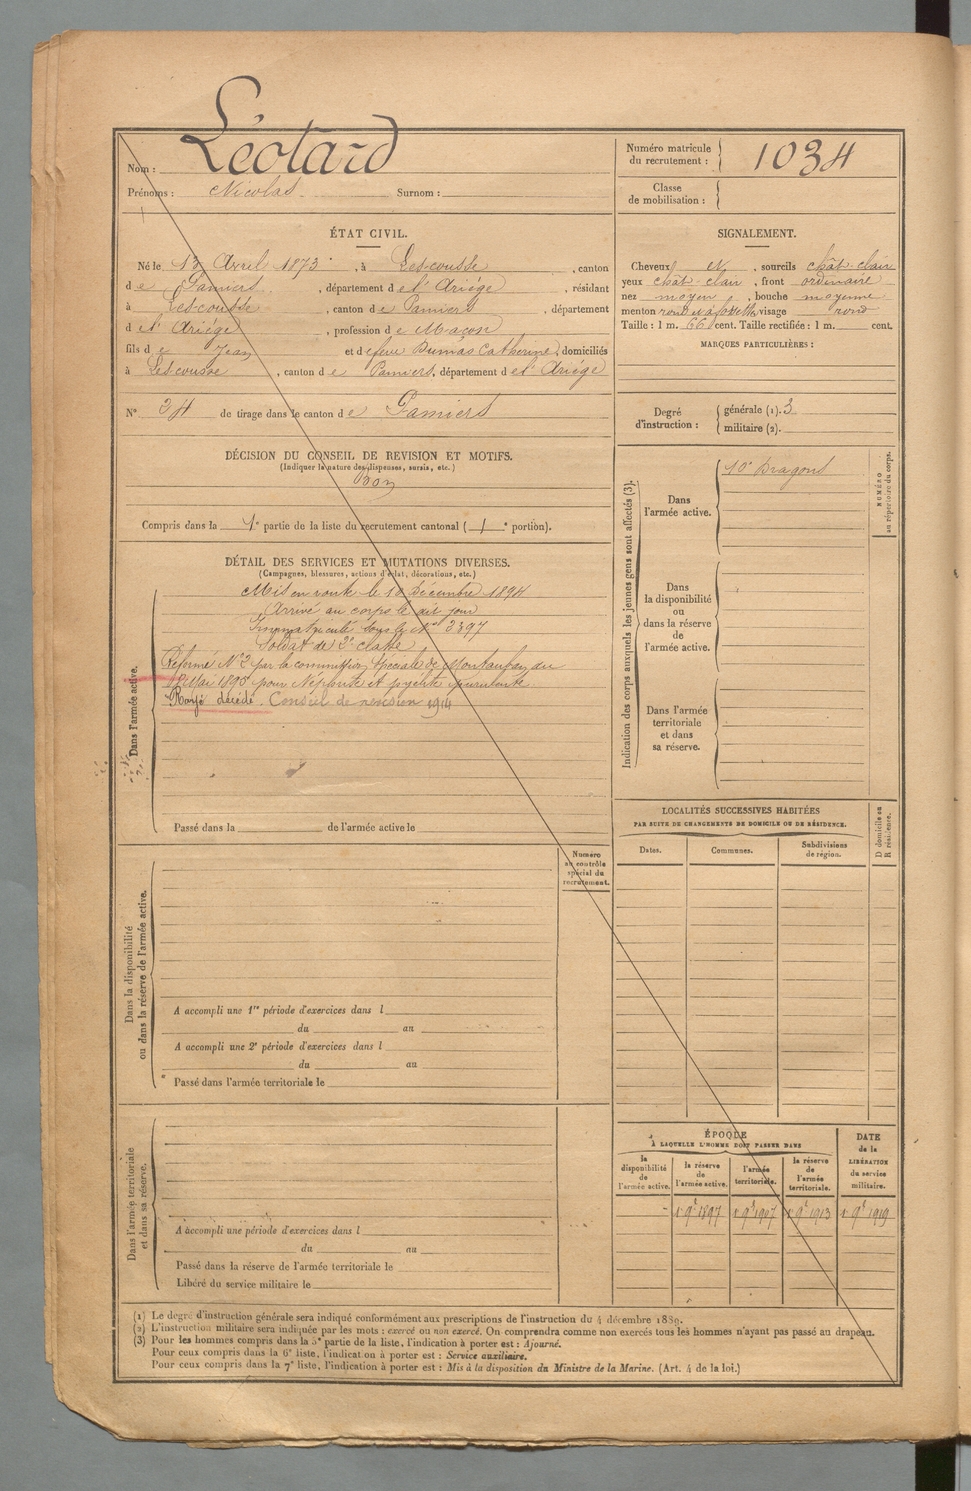 Nom : Léotard
Prénoms : Nicolas Surnom :
Numéro matricule du recrutement : 1034
Classe de mobilisation :
ÉTAT CIVIL.
Né le 13 Avril 1873, à Lescousse, canton
de Pamiers, département de l'Ariége, résidant
à Lescousse, canton de Pamiers, département
de l'Ariége, profession de Maçon
fils de Jean et de feue Dumas Catherine, domiciliés
à Lescousse, canton de Pamiers, département de l'Ariége
N° 34 de tirage dans le canton de Pamiers
DÉCISION DU CONSEIL DE REVISION ET MOTIFS.
(Indiquer la nature des dispenses, sursis, etc.)
Bon
Compris dans la 1e partie de la liste du recrutement cantonal (1e portion).
DÉTAIL DES SERVICES ET MUTATIONS DIVERSES.
(Campagnes, blessures, actions d'éclat, décorations, etc.)
Dans l'armée active.
Mis en route le 10 Décembre 1894
Arrivé au corps le dit jour
Immatriculé sous le N° 2397
Soldat de 2e classe
Réformé N°2 par la commission spéciale de Montauban du
Mai 1895 pour Néphrite et pyélite purulente
Rayé décédé. Conseil de revision 1914
Passé dans la de l'armée active le
Numéro au contrôle spécial du recrutement.
Dans la disponibilité ou dans la réserve de l'armée active.
A accompli une 1re période d'exercices dans l
du au
A accompli une 2e période d'exercices dans l
du au
Passé dans l'armée territoriale le
Dans l'armée territoriale et dans sa réserve.
A accompli une période d'exercices dans l
du au
Passé dans la réserve de l'armée territoriale le
Libéré du service militaire le
SIGNALEMENT.
Cheveux et, sourcils chât-clair
yeux chât-clair, front ordinaire
nez moyen, bouche moyenne
menton rond à fossette visage rond
Taille : 1 m. 66 cent. Taille rectifiée : 1 m. cent.
MARQUES PARTICULIÈRES :
Degré d'instruction : générale (1). 3
militaire (2).
Indication des corps auxquels les jeunes gens sont affectés (3).
NUMÉRO au répertoire du corps.
Dans l'armée active.
10e Dragons
Dans la disponibilité ou dans la réserve de l'armée active.
Dans l'armée territoriale et dans sa réserve.
LOCALITÉS SUCCESSIVES HABITÉES
PAR SUITE DE CHANGEMENTS DE DOMICILE OU DE RÉSIDENCE.
D domicile ou R résidence.
Dates. Communes. Subdivisions de région.
ÉPOQUE
À LAQUELLE L'HOMME DOIT PASSER DANS
DATE de la LIBÉRATION du service militaire.
la disponibilité de l'armée active. la réserve de l'armée active. l'armée territoriale. la réserve de l'armée territoriale.
- 1 9e 1897 1 9e 1907 1 9e 1913 1 9e 1919
(1) Le degré d'instruction générale sera indiqué conformément aux prescriptions de l'instruction du 4 décembre 1889.
(2) L'instruction militaire sera indiquée par les mots : exercé ou non exercé. On comprendra comme non exercés tous les hommes n'ayant pas passé au drapeau.
(3) Pour les hommes compris dans la 5e partie de la liste, l'indication à porter est : Ajourné.
Pour ceux compris dans la 6e liste, l'indication à porter est : Service auxiliaire.
Pour ceux compris dans la 7e liste, l'indication à porter est : Mis à la disposition du Ministre de la Marine. (Art. 4 de la loi.)